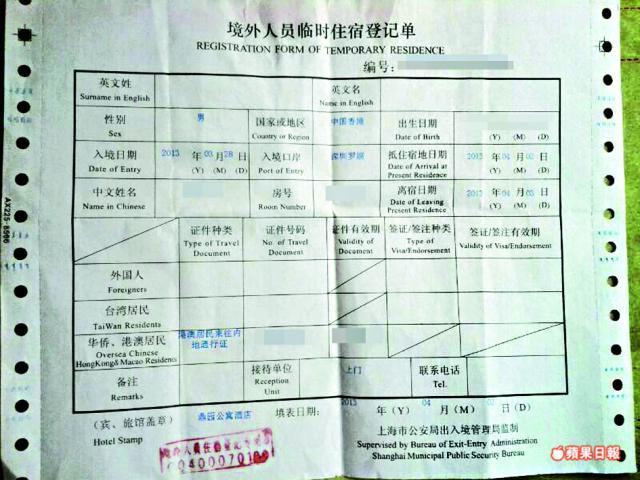 境外人员临时住宿登记单
REGISTRATION FORM OF TEMPORARY RESIDENCE
编号:
英文姓 英文名
Surname in English Name in English
性别 男 国家或地区 中国香港 出生日期
Sex Country or Region Date of Birth (Y) (M) (D)
入境日期 2013 年 03 月 28 日 入境口岸 深圳罗湖 抵住宿地日期 2013 年 04 月 02 日
Date of Entry (Y) (M) (D) Port of Entry Date of Arrival at Present Residence (Y) (M) (D)
中文姓名 房号 离宿日期 2013 年 04 月 日
Name in Chinese Room Number Date of Leaving Present Residence (Y) (M) (D)
证件种类 证件号码 证件有效期 签证/签注种类 签证/签注有效期
Type of Travel Document No. of Travel Document Validity of Document Type of Visa/Endorsement Validity of Visa/Endorsement
外国人
Foreigners
台湾居民
TaiWan Residents
华侨、港澳居民 港澳居民来往内地通行证
Oversea Chinese HongKong& Macao Residents
备注 接待单位 上门 联系电话
Remarks Reception Unit Tel.
(宾、旅馆盖章) 公寓酒店 填表日期: 2013 年 (Y) 04 月 (M) (D)
Hotel Stamp
上海市公安局出入境管理局监制
Supervised by Bureau of Exit-Entry Administration
Shanghai Municipal Public Security Bureau
境外人员住宿登记专用章
AX225-8566
蘋果日報